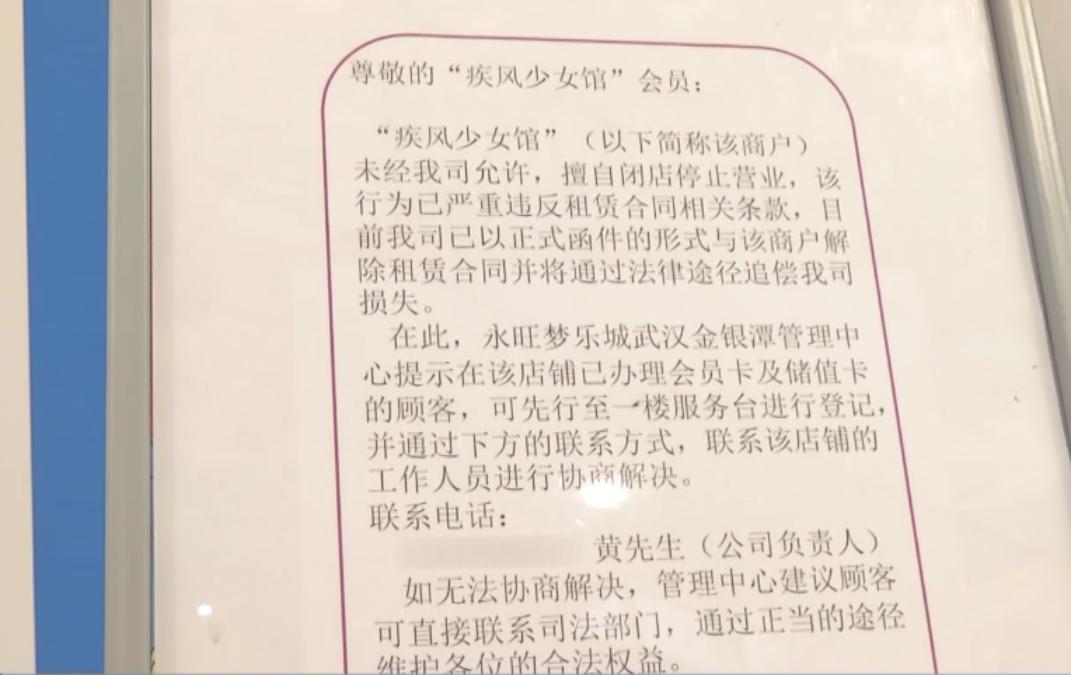 尊敬的“疾风少女馆”会员：
“疾风少女馆”（以下简称该商户）
未经我司允许，擅自闭店停止营业，该
行为已严重违反租赁合同相关条款，目
前我司已以正式函件的形式与该商户解
除租赁合同并将通过法律途径追偿我司
损失。
在此，永旺梦乐城武汉金银潭管理中
心提示在该店铺已办理会员卡及储值卡
的顾客，可先行至一楼服务台进行登记，
并通过下方的联系方式，联系该店铺的
工作人员进行协商解决。
联系电话：
黄先生（公司负责人）
如无法协商解决，管理中心建议顾客
可直接联系司法部门，通过正当的途径
维护各位的合法权益。